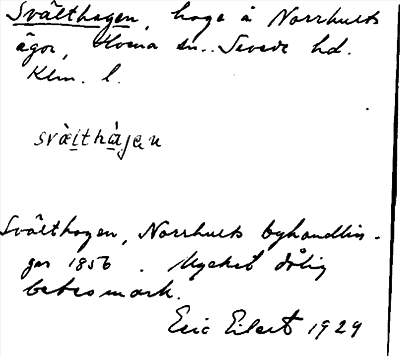 Svälthagen, hage å Norrhults
ägor, Lönna sn.. Sevede hd.
Klm. l.
svæ̀ithàgen
Svälthagen, Norrhults byhandlin-
gar 1856. Mycket dålig
betesmark.
Eric Eilert 1929